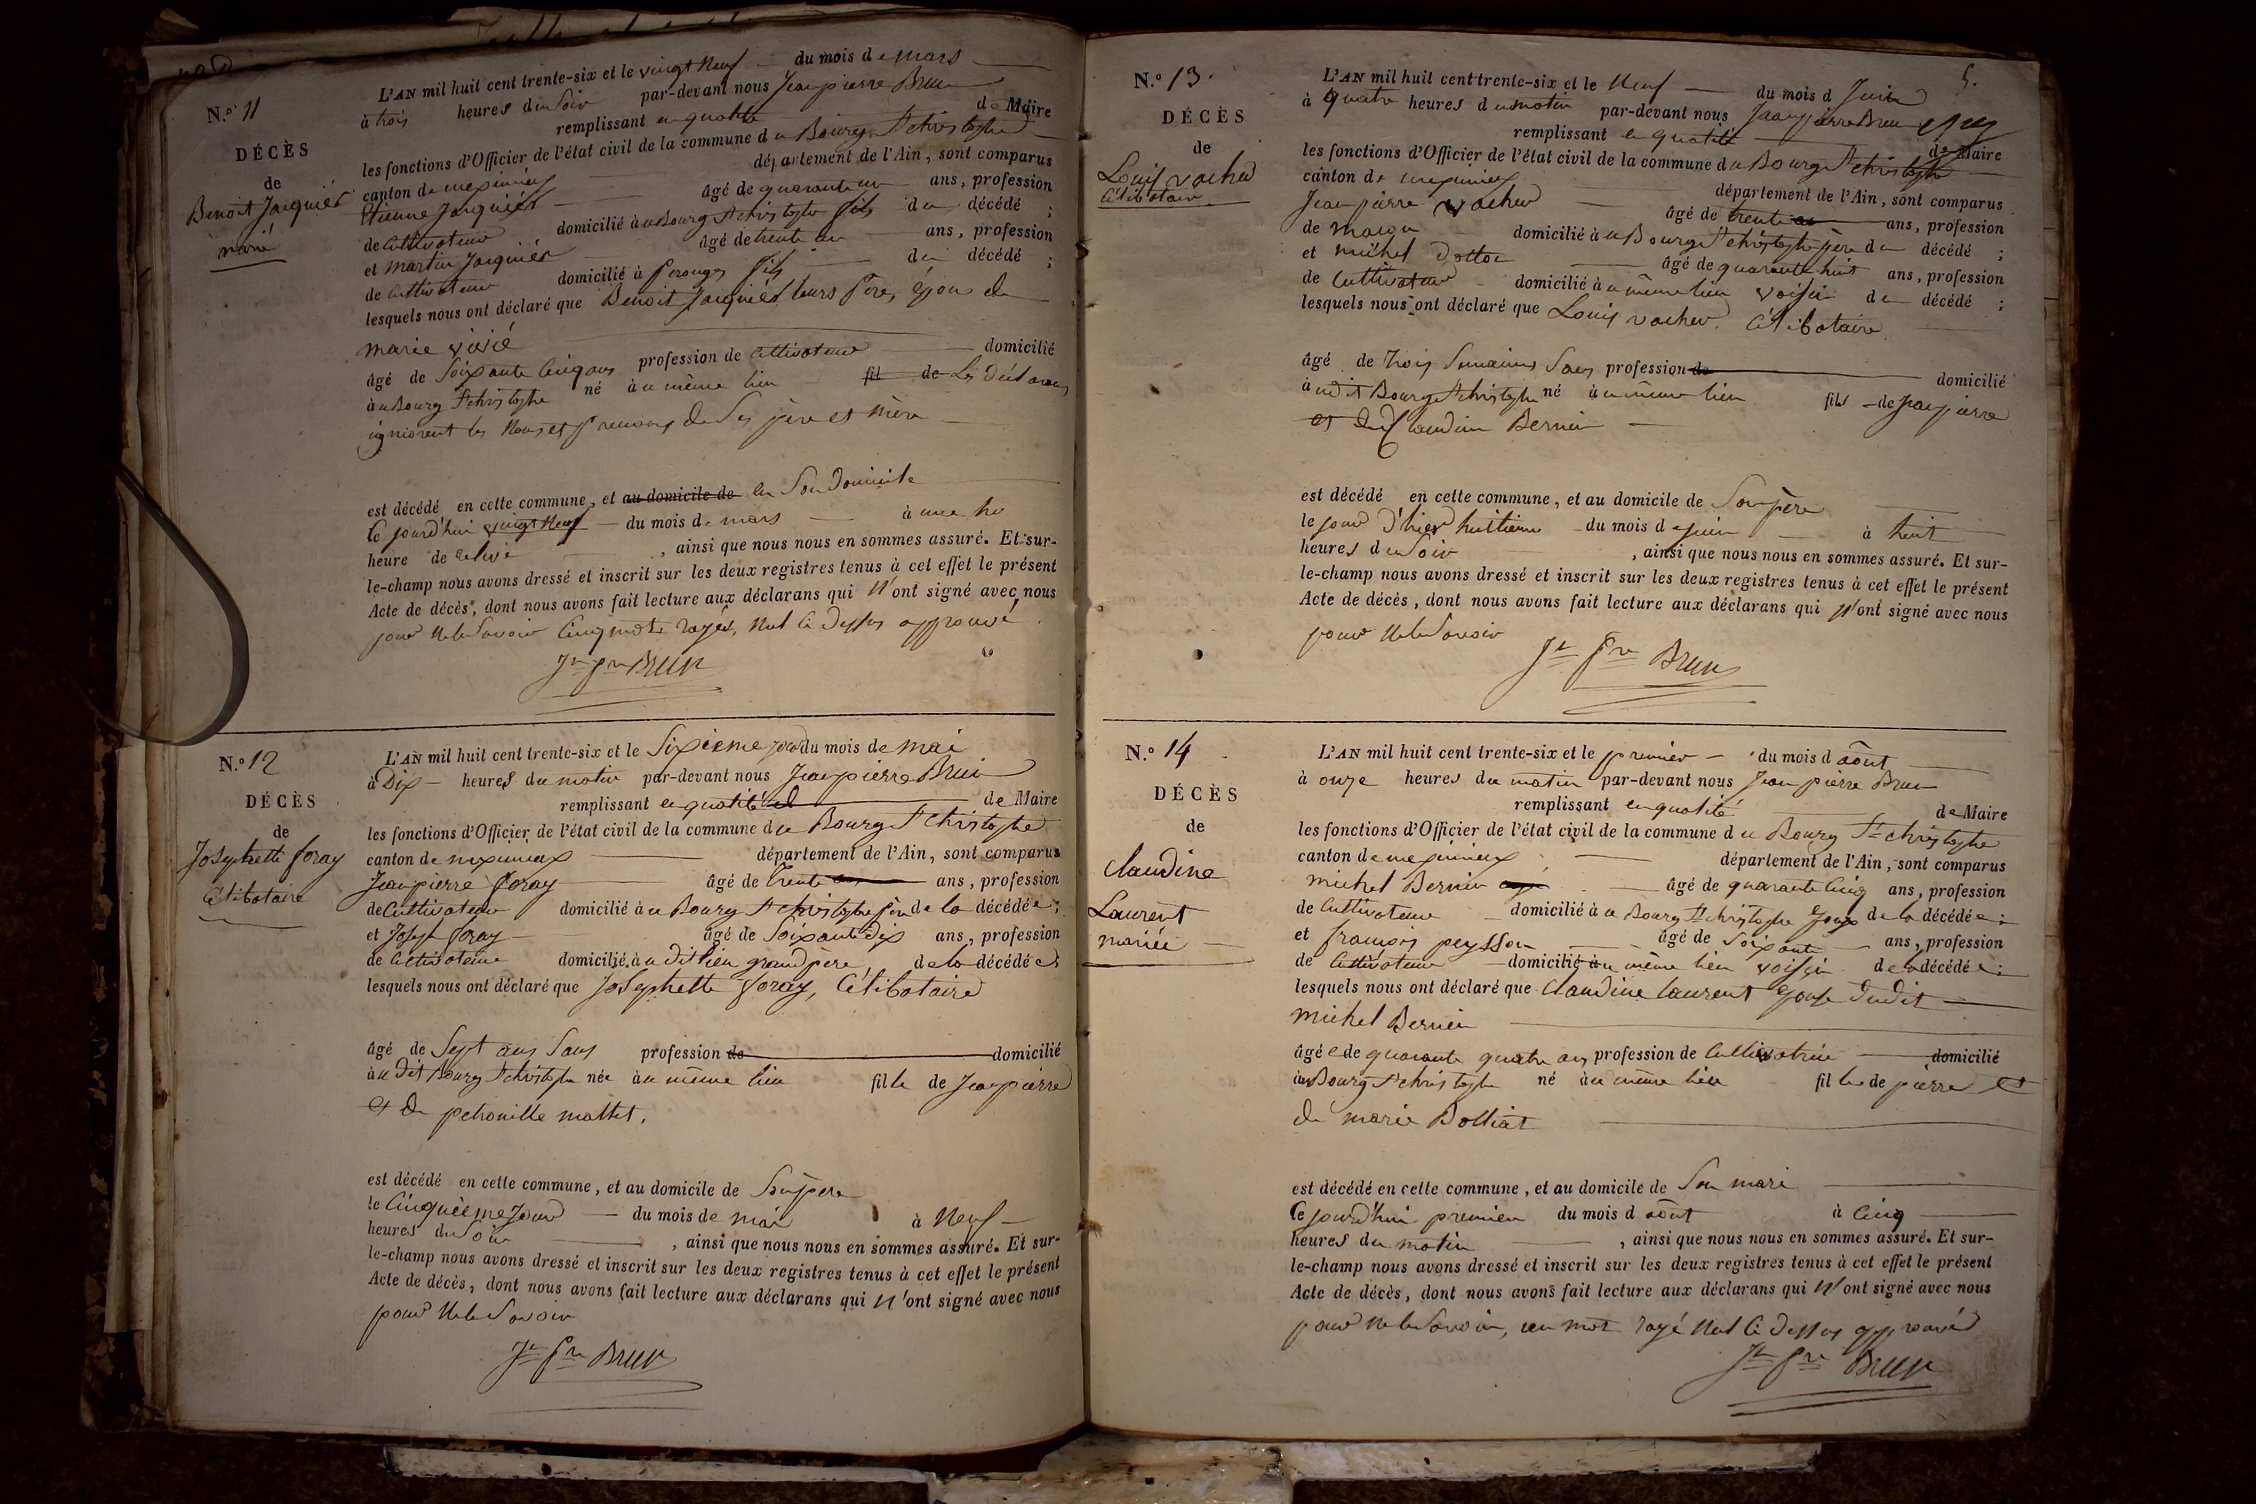 N.° 11
DÉCÈS
de
Benoit Jarguiés
marié
L'AN mil huit cent trente-six et le vingt neuf du mois de mars
à trois heures du Soir par-devant nous Jean pierre Brun
remplissant en qualité de Maire
les fonctions d'Officier de l'état civil de la commune du Bourg St christophe
canton de meximieux département de l'Ain, sont comparus
Etienne Jarguiés âgé de quarante un ans, profession
de Cultivateur domicilié à u Bourg St christophe fils du décédé ;
et martin Jarguiés âgé de trente un ans, profession
de Cultivateur domicilié à perouges fils du décédé ;
lesquels nous ont déclaré que Benoit Jarguiés leurs Père, Epoux de
marie
âgé de Soixante Cinq ans profession de Cultivateur domicilié
à u Bourg St christophe né à u même lieu fil de Les Déclarans
igniorent les Noms et prenoms de Ses père et mère
est décédé en cette commune, et au domicile de en Son Domicile
Ce jourd'hui vingt neuf du mois de mars à une
heure de , ainsi que nous nous en sommes assuré. Et sur-
le-champ nous avons dressé et inscrit sur les deux registres tenus à cet effet le présent
Acte de décès, dont nous avons fait lecture aux déclarans qui n'ont signé avec nous
pour ne le Savoir Cinq mots rayés, nul Ci Dessus approuvé
Jn Pre BRUN
N.° 12
DÉCÈS
de
Josephette foray
Célibataire
L'AN mil huit cent trente-six et le Sixieme jour du mois de mai
à Dix heures du matin par-devant nous Jean pierre Brun
remplissant en qualité de Maire
les fonctions d'Officier de l'état civil de la commune du Bourg St christophe
canton de meximieux département de l'Ain, sont comparus
Jean pierre foray âgé de trente ans, profession
de Cultivateur domicilié à u Bourg St christophe père de la décédée ;
et Joseph foray âgé de Soixante Dix ans, profession
de Cultivateur domicilié à u dit lieu grand père de la décédée ;
lesquels nous ont déclaré que Josephette foray, Célibataire
âgé de Sept ans Sans profession de domicilié
à u dit Bourg St christophe née à u même lieu fille de Jean pierre
et de petronille mallet.
est décédé en cette commune, et au domicile de Son père
le Cinquième Jour du mois de mai à Neuf
heures du Soir , ainsi que nous nous en sommes assuré. Et sur-
le-champ nous avons dressé et inscrit sur les deux registres tenus à cet effet le présent
Acte de décès, dont nous avons fait lecture aux déclarans qui n'ont signé avec nous
pour ne le Savoir
Jn Pre BRUN
5.
N.° 13.
DÉCÈS
de
Louis vacher
Célibataire
L'AN mil huit cent trente-six et le Neuf du mois d Juin
à quatre heures du matin par-devant nous Jean pierre Brun
remplissant en qualité de Maire
les fonctions d'Officier de l'état civil de la commune du Bourg St christophe
canton de meximieux département de l'Ain, sont comparus
Jean pierre vacher âgé de trente ans, profession
de maçon domicilié à u Bourg St christophe père du décédé ;
et michel âgé de quarante huit ans, profession
de Cultivateur domicilié à u même lieu voisin du décédé ;
lesquels nous ont déclaré que Louis vacher. Célibataire
âgé de trois Semaines Sans profession de domicilié
à u dit Bourg St christophe né à u même lieu fils de Jean pierre
et de Claudine Bernin
est décédé en cette commune, et au domicile de Son père
le jour d'hier huitieme du mois de juin à huit
heures du Soir , ainsi que nous nous en sommes assuré. Et sur-
le-champ nous avons dressé et inscrit sur les deux registres tenus à cet effet le présent
Acte de décès, dont nous avons fait lecture aux déclarans qui n'ont signé avec nous
pour ne le Savoir
Jn Pre BRUN
N.° 14
DÉCÈS
de
Claudine
Laurent
mariée
L'AN mil huit cent trente-six et le premier du mois d août
à onze heures du matin par-devant nous Jean pierre Brun
remplissant en qualité de Maire
les fonctions d'Officier de l'état civil de la commune du Bourg St christophe
canton de meximieux département de l'Ain, sont comparus
michel Bernin âgé de quarante Cinq ans, profession
de Cultivateur domicilié à u Bourg St christophe Epoux de la décédée ;
et françois peysson âgé de Soixante ans, profession
de Cultivateur domicilié à u même lieu voisin de la décédée ;
lesquels nous ont déclaré que Claudine Laurent Epouse dudit
michel Bernin
âgée de quarante quatre ans profession de Cultivatrice domicilié
à u Bourg St christophe né à u même lieu fille de pierre et
de marie Bolliat
est décédé en cette commune, et au domicile de Son mari
Ce jourd'hui premier du mois d août à Cinq
heures du matin , ainsi que nous nous en sommes assuré. Et sur-
le-champ nous avons dressé et inscrit sur les deux registres tenus à cet effet le présent
Acte de décès, dont nous avons fait lecture aux déclarans qui n'ont signé avec nous
pour ne le Savoir, un mot rayé nul Ci Dessus approuvé
Jn Pre BRUN